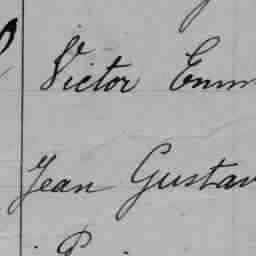 Victor Emm
Jean Gustav